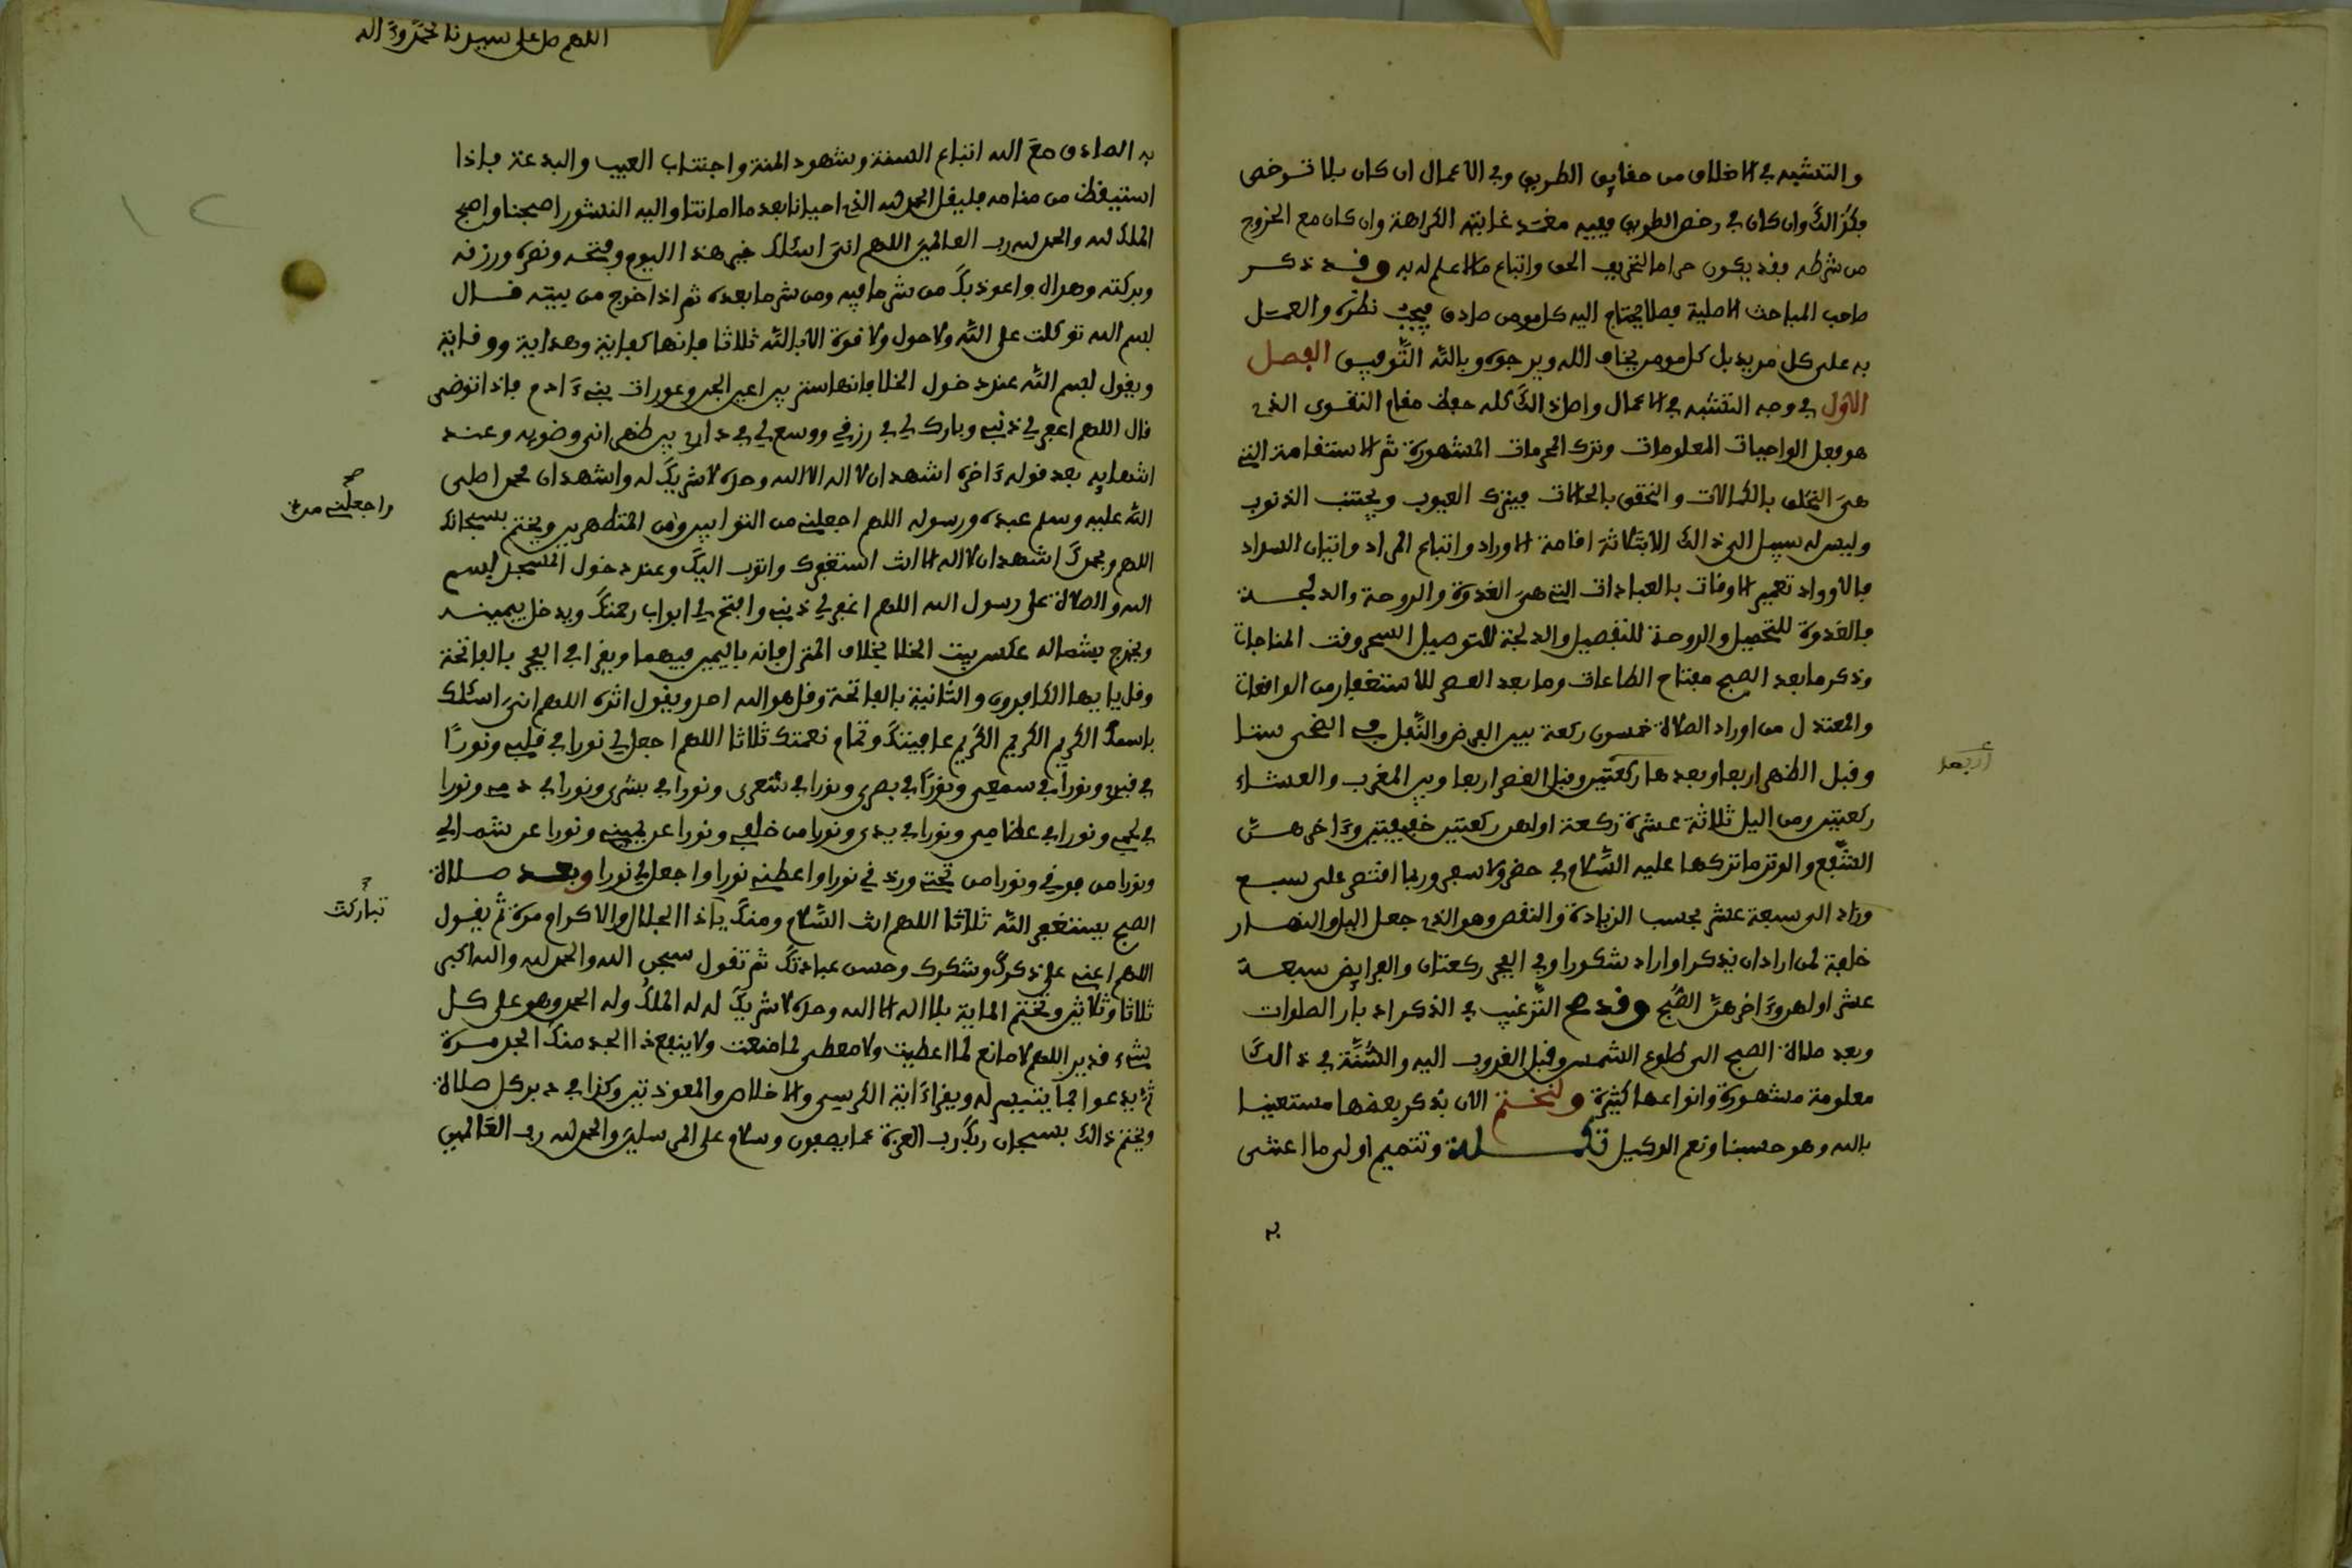 والتشبه في الاخلاق من حقايق الطريق وفي الاعمال ان كان بلا ترخص
فكذالك وان كان في رخص الطريق ففيه مفسد غايته الكراهة وان كان مع الخروج
من شرطه فقد يكون حراما لتخريف الحق واتباع مالا علم له به وقد ذكر
صاحب المباحث الاصلية فصلا يحتاج اليه كل مومن صادق فيجب نظره والعمل
به على كل مريد بل كل مومن يخاف الله ويرجوه وبالله التوفيق الفصل
الاول في وجه التشبه في الاعمال واصل ذالك كله حفظ مقام التقوى الذي
هو فعل الواجبات المعلومات وترك المحرمات المشهورة ثم الاستقامة التي
هي التخلق بالكمالات والتحقق بالحالات فيترك العيوب ويجتنب الذنوب
وليس له سبيل الى ذالك الا بثلاثة اقامة الاوراد واتباع المراد واتيان السداد
فالاوراد تعمير الاوقات بالعبادات التي هي الغدوة والروحة والدلجة
فالغدوة للتحصيل والروحة للتفصيل والدلجة للتوصيل السحر وقت المناجات
وذكر ما بعد الصبح مفتاح الطاعات وما بعد العصر للاستغفار من الواقعات
والمعتدل من اوراد الصلاة خمسون ركعة بين الفرض والنفل في الضحى ستا
وقبل الظهر اربعا وبعدها ركعتين وقبل العصر اربعا وبين المغرب والعشاء
اربعا
ركعتين ومن اليل ثلاثة عشرة ركعة اولهن ركعتين خفيفتين وءاخرهن
الشفع والوتر ما تركها عليه السلام في حضر ولا سفر وربما اقتصر على سبع
وزاد الى سبعة عشر بحسب الزيادة والنقص وهو الذي جعل اليل والنهار
خلفة لمن اراد ان يذكر او اراد شكورا وفي الفجر ركعتان والفرايض سبعة
عشر اولهن وءاخرهن الصبح وقد صح الترغيب في الذكر ادبار الصلوات
وبعد صلاة الصبح الى طلوع الشمس وقبل الغروب اليه والسنة في ذالك
معلومة مشهورة وانواعها كثيرة ولنختم الان بذكر بعضها مستعينا
بالله وهو حسبنا ونعم الوكيل تكملة وتتميم اولى ما اعتنى
به
اللهم صل على سيدنا محمد وءاله
به الصادق مع الله اتباع السنة وشهود المنة واجتناب العيب والبدعة فاذا
استيقظ من منامه فليقل الحمد لله الذي احيانا بعد ما اماتنا واليه النشور اصبحنا واصبح
الملك لله والحمد لله رب العالمين اللهم اني اسئلك خير هذا اليوم وفتحه ونصره ورزقه
وبركته وهداه واعوذ بك من شر ما فيه ومن شر ما بعده ثم اذا خرج من بيته قال
بسم الله توكلت على الله ولا حول ولا قوة الا بالله ثلاثا فانها كفاية وهداية ووقاية
ويقول بسم الله عند دخول الخلا فانها ستر بين اعين الجن وعورات بني ءادم فاذا توضى
قال اللهم اغفر لي ذنبي وبارك لي في رزقي ووسع لي في داري بين ظهراني وضوئه وعند
انتهايه بعد قوله ءاخره اشهد ان لا اله الا الله وحده لا شريك له واشهد ان محمدا صلى
الله عليه وسلم عبده ورسوله اللهم اجعلني من التوابين ومن المتطهرين ويختم بسبحانك
صح واجعلني من
اللهم وبحمدك اشهد ان لا اله الا انت استغفرك واتوب اليك وعند دخول المسجد بسم
الله والصلاة على رسول الله اللهم اغفر لي ذنبي وافتح لي ابواب رحمتك ويدخل بيمينه
ويخرج بشماله عكس بيت الخلا بخلاف المنزل فانه باليمين فيهما ويقرا في الفجر بالفاتحة
وقل يا ايها الكافرون والثانية بالفاتحة وقل هو الله احد ويقول اثره اللهم اني اسئلك
باسمك الكريم الكريم الكريم عافيتك وتمام نعمتك ثلاثا اللهم اجعل لي نورا في قلبي ونورًا
في قبري ونورا في سمعي ونورا في بصري ونورا في شعري ونورا في بشري ونورا في دمي ونورا
في لحمي ونورا في عظامي ونورا في يدي ونورا من خلفي ونورا عن يميني ونورا عن شمالي
ونورا من فوقي ونورا من تحتي وزدني نورا واعطني نورا واجعل لي نورا وبعد صلاة
الصبح يستغفر الله ثلاثا اللهم انت السلام ومنك يا ذا الجلال والاكرام مرة ثم يقول
تباركت
اللهم اعني على ذكرك وشكرك وحسن عبادتك ثم تقول سبحن الله والحمد لله والله اكبر
ثلاثا وثلاثين وتختم الماية بلا اله الا الله وحده لا شريك له له الملك وله الحمد وهو على كل
شيء قدير اللهم لا مانع لما اعطيت ولا معطي لما منعت ولا ينفع ذا الجد منك الجد مرة
ثم يدعوا بما يتيسر له ويقرا ءاية الكرسي والاخلاص والمعوذتين وكذا في دبر كل صلاة
ويختم ذالك بسبحان ربك رب العزة عما يصفون وسلام على المرسلين والحمد لله رب العالمين
١٢